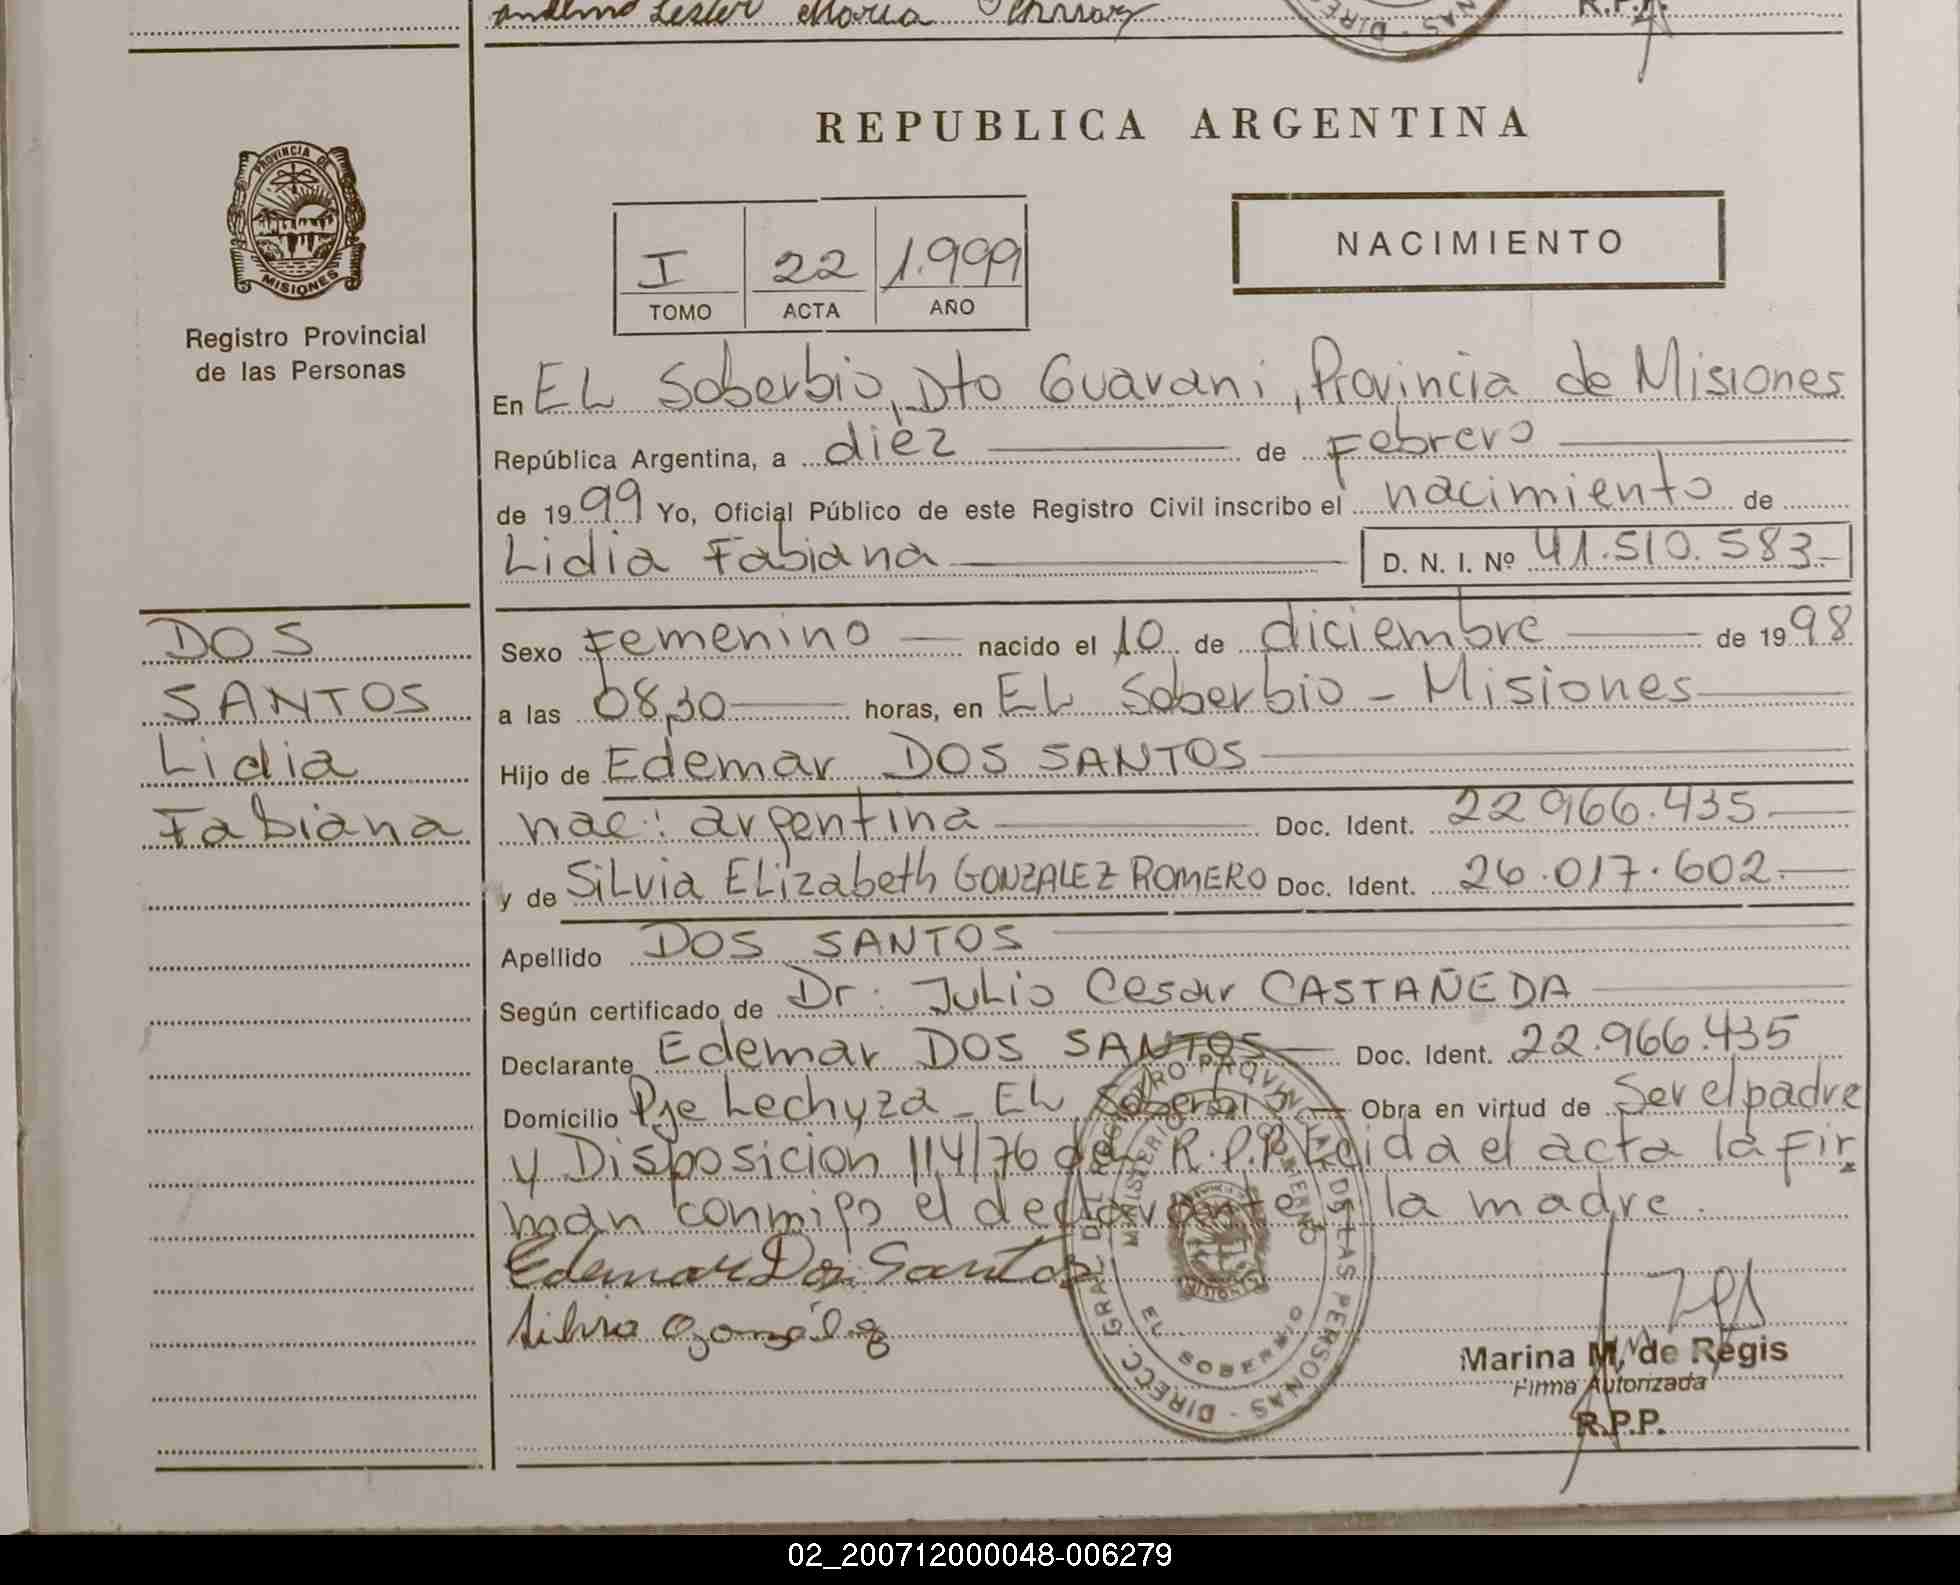 Lester Maria
DIREC. - NAS
R.P.P.
REPUBLICA ARGENTINA
PROVINCIA DE
MISIONES
Registro Provincial
de las Personas
I 22 1.999
TOMO ACTA AÑO
NACIMIENTO
En EL Soberbio, Dto Guarani, Provincia de Misiones
República Argentina, a diez de Febrero
de 1999 Yo, Oficial Público de este Registro Civil inscribo el nacimiento de
Lidia Fabiana D. N. I. Nº 41.510.583-
DOS
SANTOS
Lidia
Fabiana
Sexo Femenino nacido el 10 de diciembre de 1998
a las 08,30 horas, en EL Soberbio - Misiones
Hijo de Edemar DOS SANTOS
nac: argentina Doc. Ident. 22966.435.
y de Silvia Elizabeth GONZALEZ ROMERO Doc. Ident. 26.017.602.
Apellido DOS SANTOS
Según certificado de Dr. Julio Cesar CASTAÑEDA
Declarante Edemar DOS SANTOS Doc. Ident. 22.966.435
Domicilio Pje Lechuza - EL Soberbio Obra en virtud de Ser el padre
y Disposicion 114/76 del R.P.P. Leida el acta la fir
man conmigo el declarante y la madre.
Edemar Dos Santos
Silvia Gonzélez
DIRECC. GRAL. DEL REGISTRO PROVINCIAL DE LAS PERSONAS -
MINISTERIO DE GOBIERNO
MISIONES
EL SOBERBIO
Marina M. de Regis
Firma Autorizada
R.P.P.
02_200712000048-006279